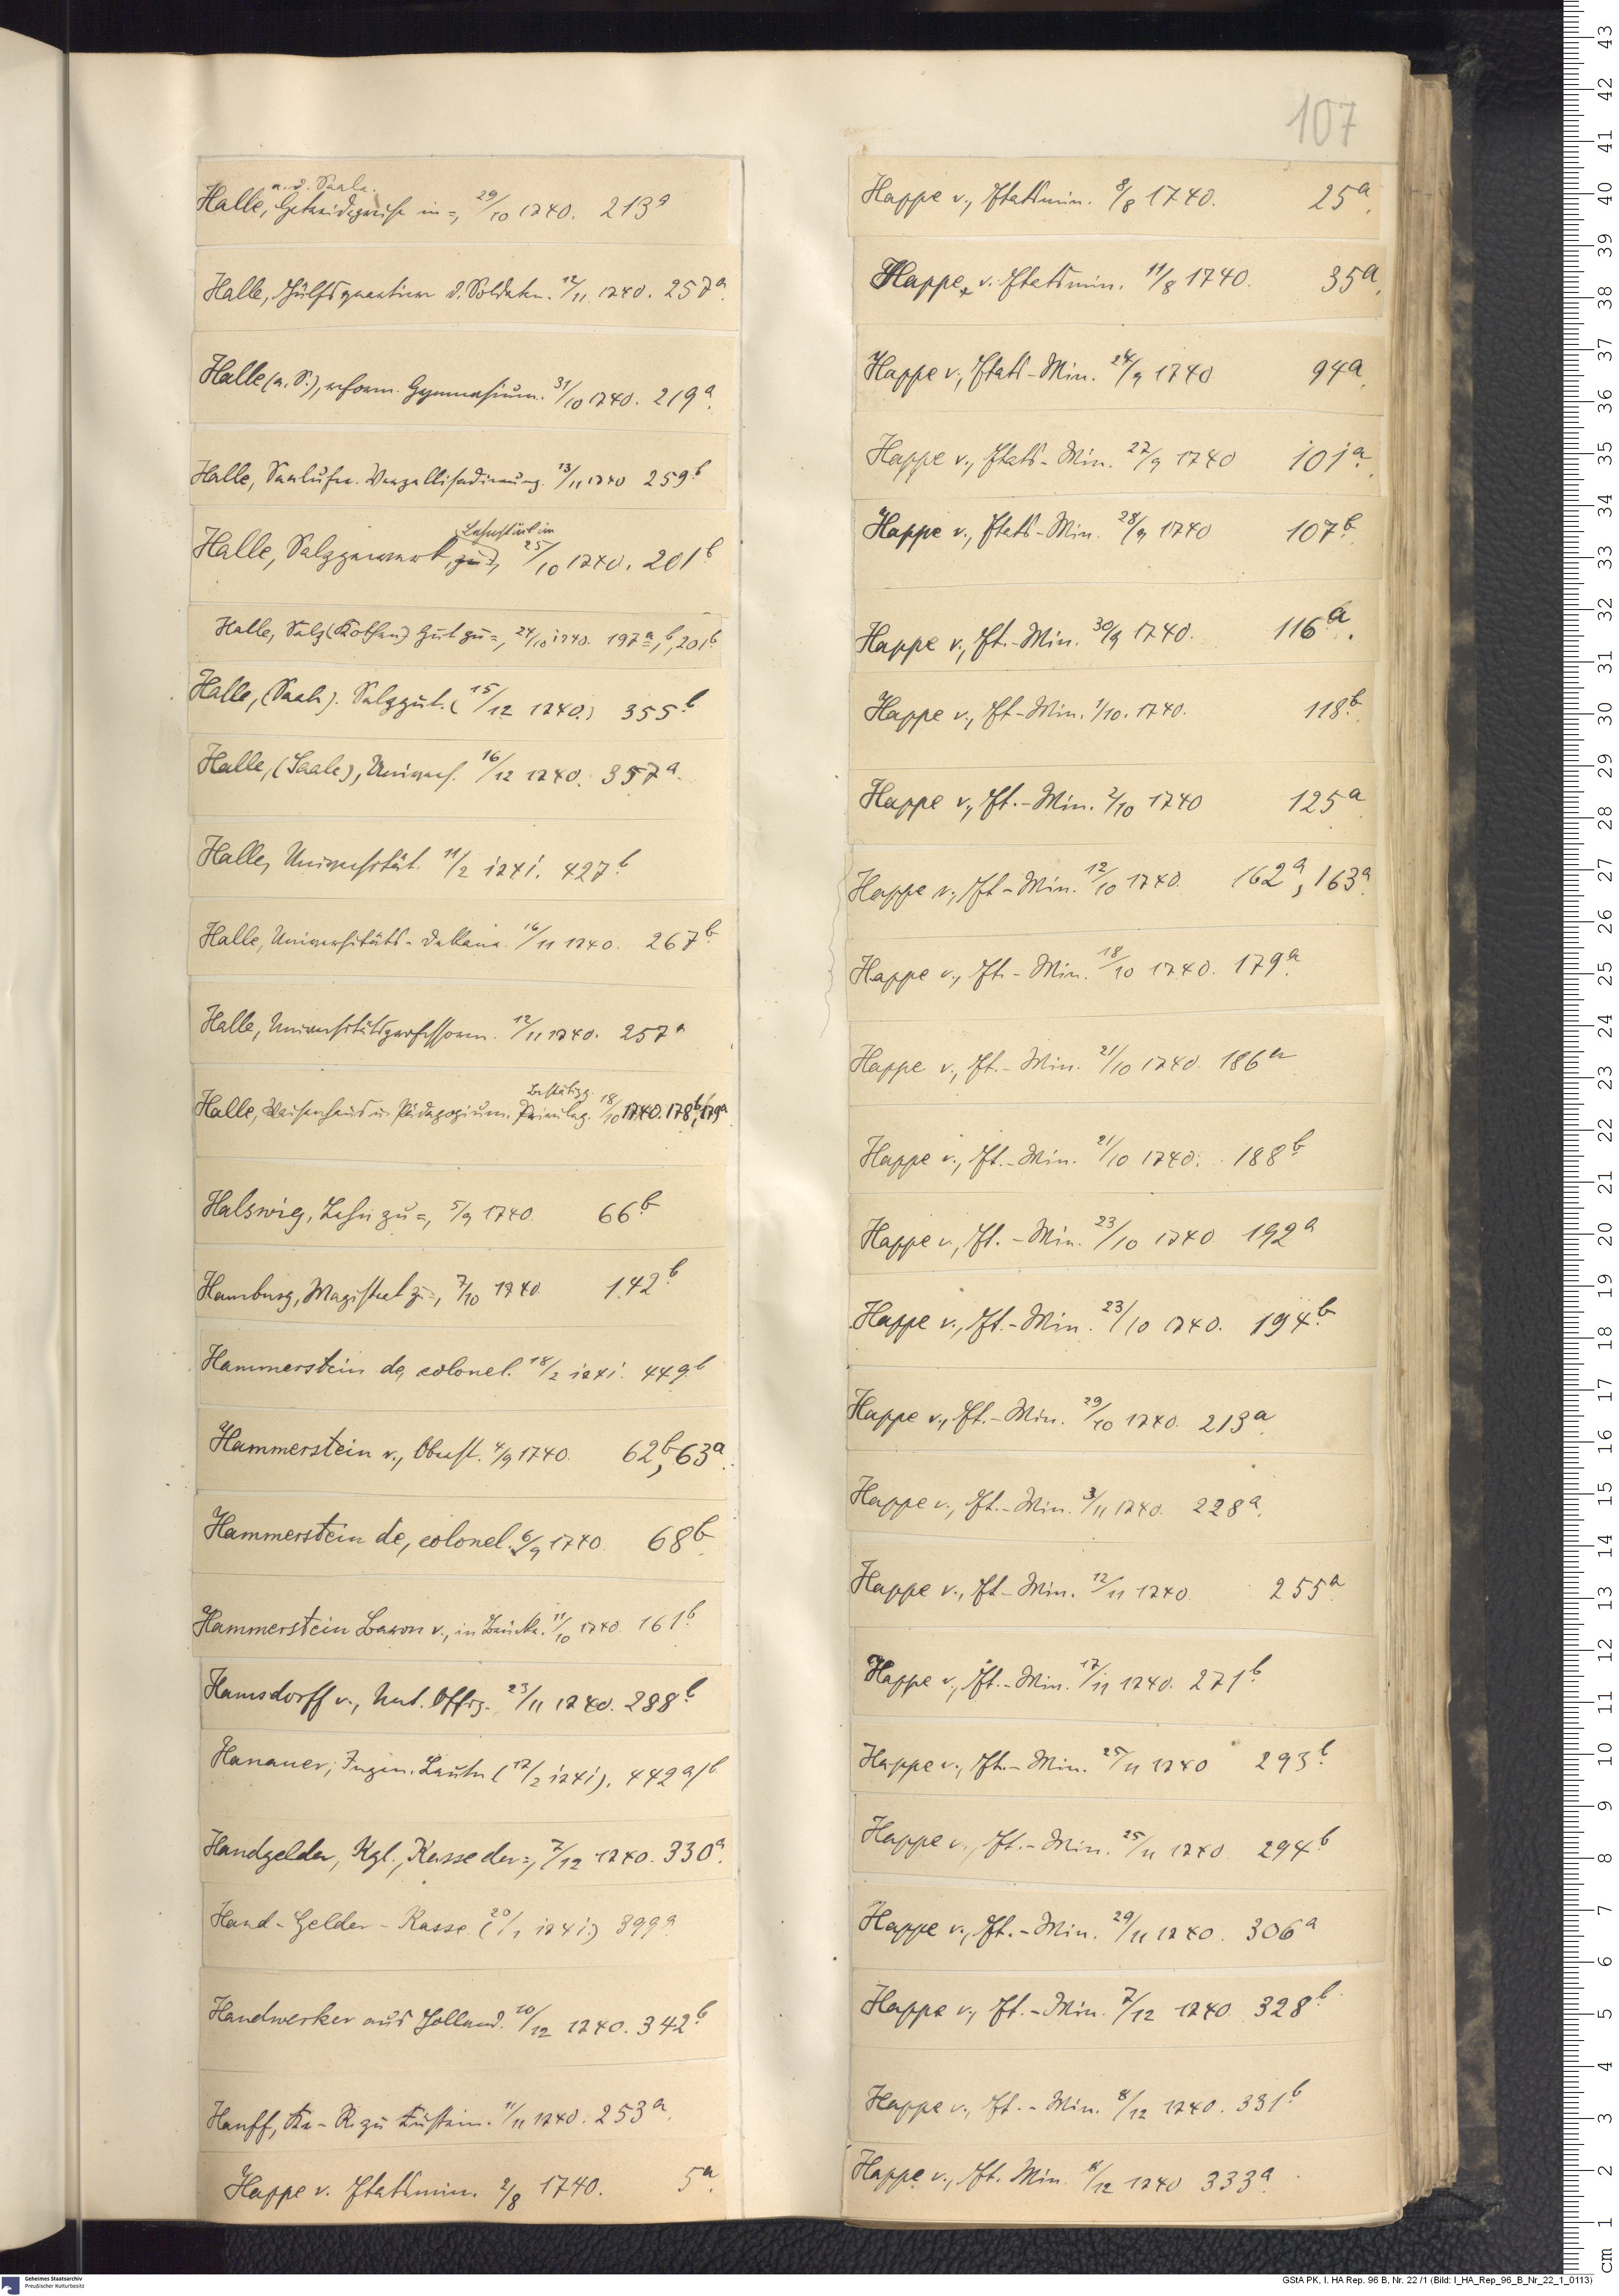 107
a. d. Saale.
Halle, Getreidepreise in =, 29/10 1740. 213a
Halle, Hülfsquartiere d. Soldaten. 12/11. 1740. 257a.
Halle (a. S.), reform. Gymnasium. 31/10 1740. 219a.
Halle, Saalufer. Verpallisadierung. 13/11 1740 259b
Halle, Salzgewerk, 25/10 1740. 201b
Halle, Salz (Kothen) Gut zu =, 24/10 1740. 197a, b, 201b
Halle, (Saale). Salzgut. (15/12 1740.) 355b
Halle, (Saale), Univers. 16/12 1740. 357a.
Halle, Universität. 11/2 1741. 427b
Halle, Universitäts- 16/11 1740. 267b
Halle, Universitätsprofessoren. 12/11 1740. 257a
Bestätigg.
Halle, Waisenhaus u. Pädagogium. Privileg. 18/10 1740. 178b, 179a
Halswig, Lehn zu =, 5/9 1740. 66b
Hamburg, Magistrat zu =, 7/10 1740. 142b
Hammerstein de, colonel. 18/2 1741. 449b
Hammerstein v., Oberst. 4/9 1740. 62b, 63a.
Hammerstein de, colonel. 6/9 1740. 68b.
Hammerstein Baron v., in 11/10 1740. 161b.
Hamsdorff v., Unt. Offiz. 23/11 1740. 288b
Hanauer, Ingen. Leutn (17/2 1741). 442a/b
Handgelder, Kgl., Kasse der =, 7/12 1740. 330a.
Hand-Gelder-Kasse (20/1 1741.) 399a
Handwerker aus Holland. 10/12 1740. 342b
Hanff, Kr-R. zu Küstrin. 11/11 1740. 253a.
Happe v. Etatsmin. 2/8 1740. 5a.
Happe v., Etatsmin. 8/8 1740. 25a.
Happe, v. Etatsmin. 11/8 1740. 35a.
Happe v., Etats-Min. 24/9 1740 94a.
Happe v., Etats-Min. 27/9 1740 101a.
Happe v., Etats-Min. 28/9 1740 107b.
Happe v., Et.-Min. 30/9 1740. 116a.
Happe v., Et-Min. 1/10. 1740. 118b.
Happe v., Et.-Min. 2/10 1740 125a.
Happe v., Et-Min. 12/10 1740. 162a, 163a.
Happe v., Et.-Min. 18/10 1740. 179a.
Happe v., Et.-Min. 21/10 1740. 186a
Happe v., Et.-Min. 21/10 1740. 188b.
Happe v., Et.-Min. 23/10 1740 192a
Happe v., Et.-Min. 23/10 1740. 194b.
Happe v., Et.-Min. 29/10 1740. 213a.
Happe v., Et.-Min. 3/11 1740. 228a.
Happe v., Et-Min. 12/11 1740. 255a.
Happe v., Et.-Min. 17/11 1740. 271b
Happe v., Et.-Min. 25/11 1740 293b.
Happe v., Et.-Min. 25/11 1740. 294b
Happe v., Et.-Min. 29/11 1740. 306a
Happe v., Et.-Min. 7/12 1740. 328b.
Happe v., Et.-Min. 8/12 1740. 331b
Happe v., Et. Min. 8/12 1740 333a.
Geheimes Staatsarchiv
Preußischer Kulturbesitz
GStA PK, I. HA Rep. 96 B, Nr. 22 /1 (Bild: I_HA_Rep_96_B_Nr_22_1_0113)